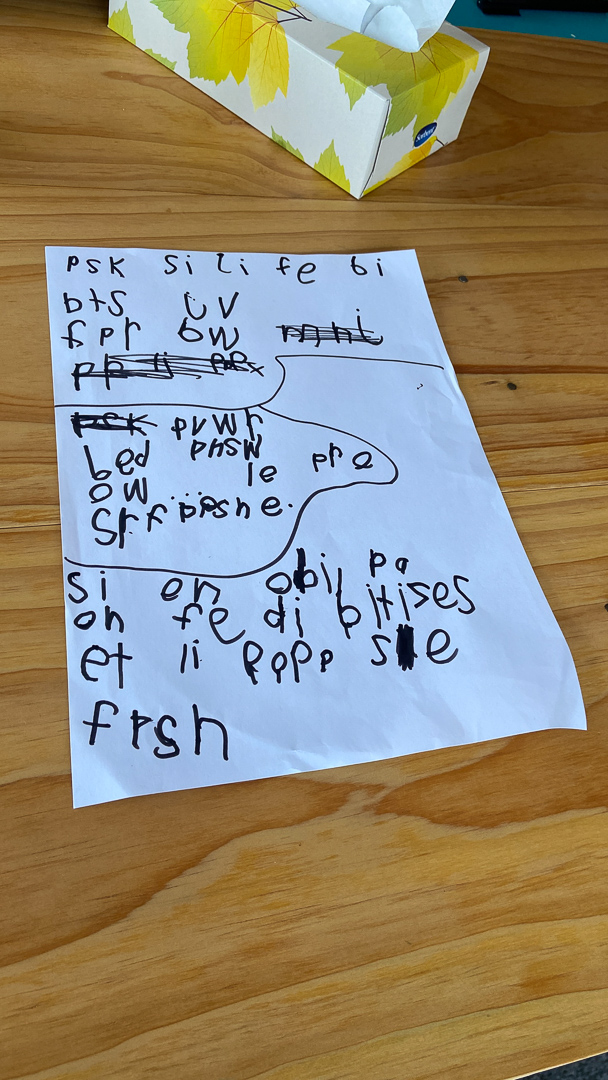 Sorbent
psk si li fe bi
bts uv
fpr ow
prwr
bed phsw
ow le pre
srf ppshe.
si en obij pa
on fe di bitises
et li popp se
frsh